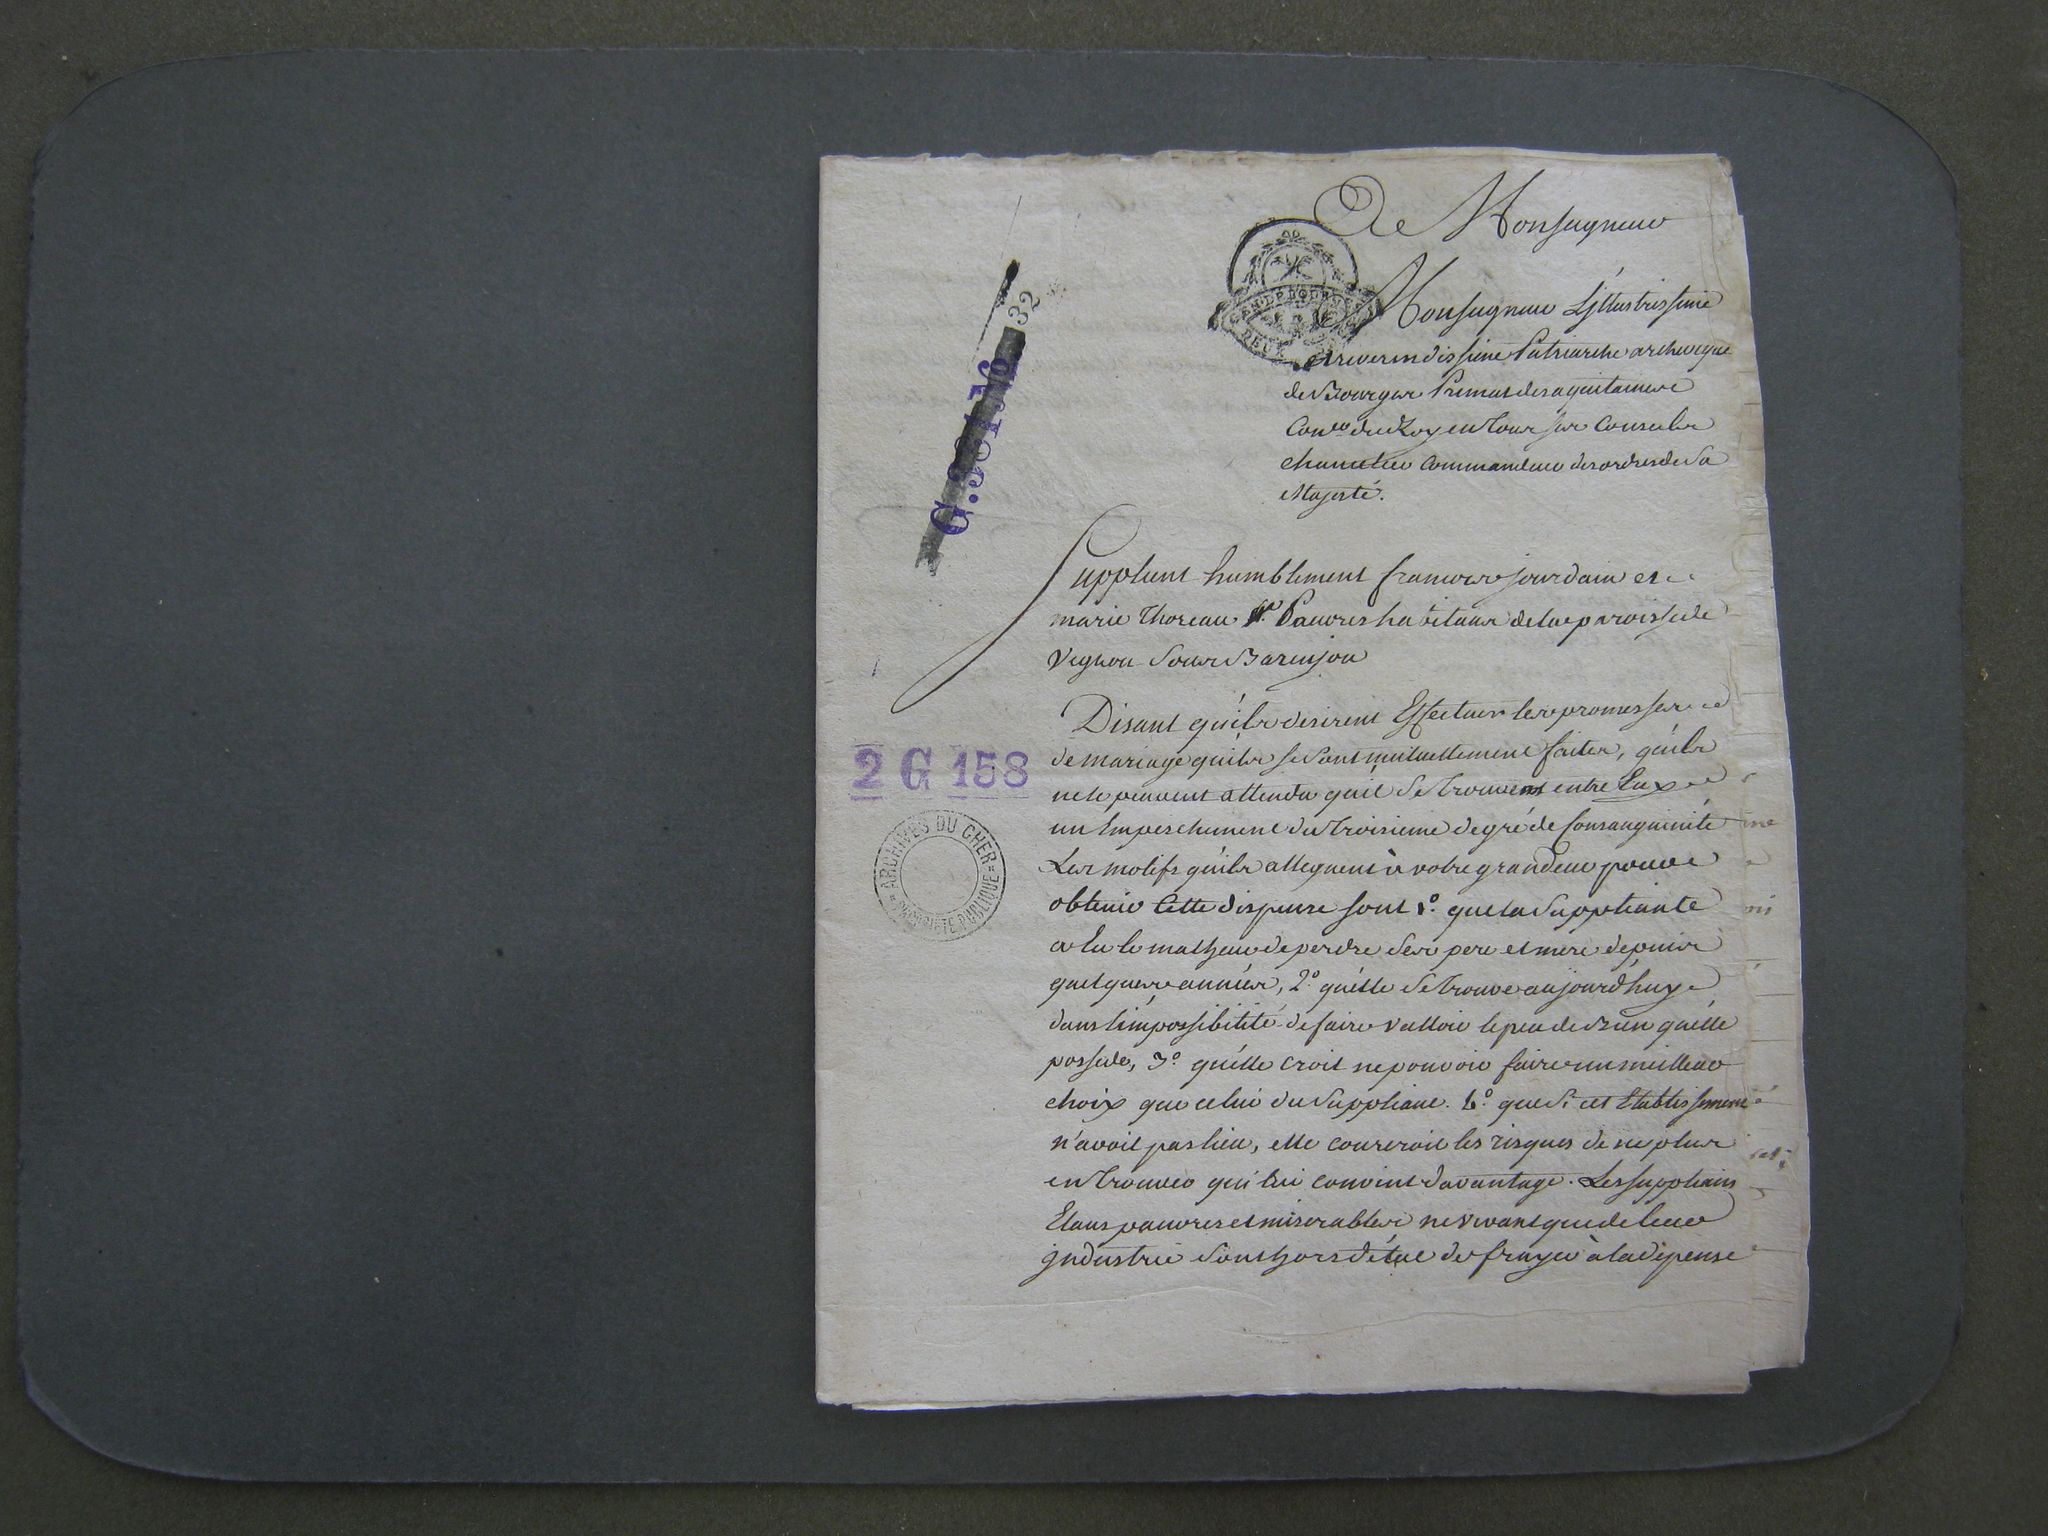 A Monseigneur
Monseigneur L'jllustrissime
et reverendissime Patriarche archeveque
de Bourges Primat des aquitaines
Con.er du Roy en tous ses Conseils
chancelier Commandeur des ordres de Sa
Majesté.
Supplient humblement francois jourdain et
marie thoreau Pauvres habitans de la paroisse de
Vignou Sous Barenjou
Disant qu'ils desirent Effectuer les promesses
de mariage qu'ils se sont mutuellement faites, qu'ils
ne le peuvent attendu qu'il Se trouve entre Eux
un Empeschement du troisieme degré de Consanguinité
Les motifs qu'ils alleguent à votre grandeur pour
obtenir Cette dispense sont 1.º que la Suppliante
a Eu le malheur de perdre Ses pere et mere depuis
quelques années, 2.º qu'elle Se trouve aujourd'huy
dans l'impossibilité de faire valloir le peu de Bien qu'elle
possede, 3.º qu'elle croit ne pouvoir faire un meilleur
choix que celui du Suppliant. 4.º que Si cet Etablissement
n'avoit pas lieu, elle coureroit les risques de ne plus
en trouver qui lui convint davantage. Les supplians
Etans pauvres et miserables ne vivant que de leur
jndustrie Sont hors d'état de frayer à la dépense
2 G 158
ARCHIVES DU CHER
PROPRIÉTÉ PUBLIQUE
32